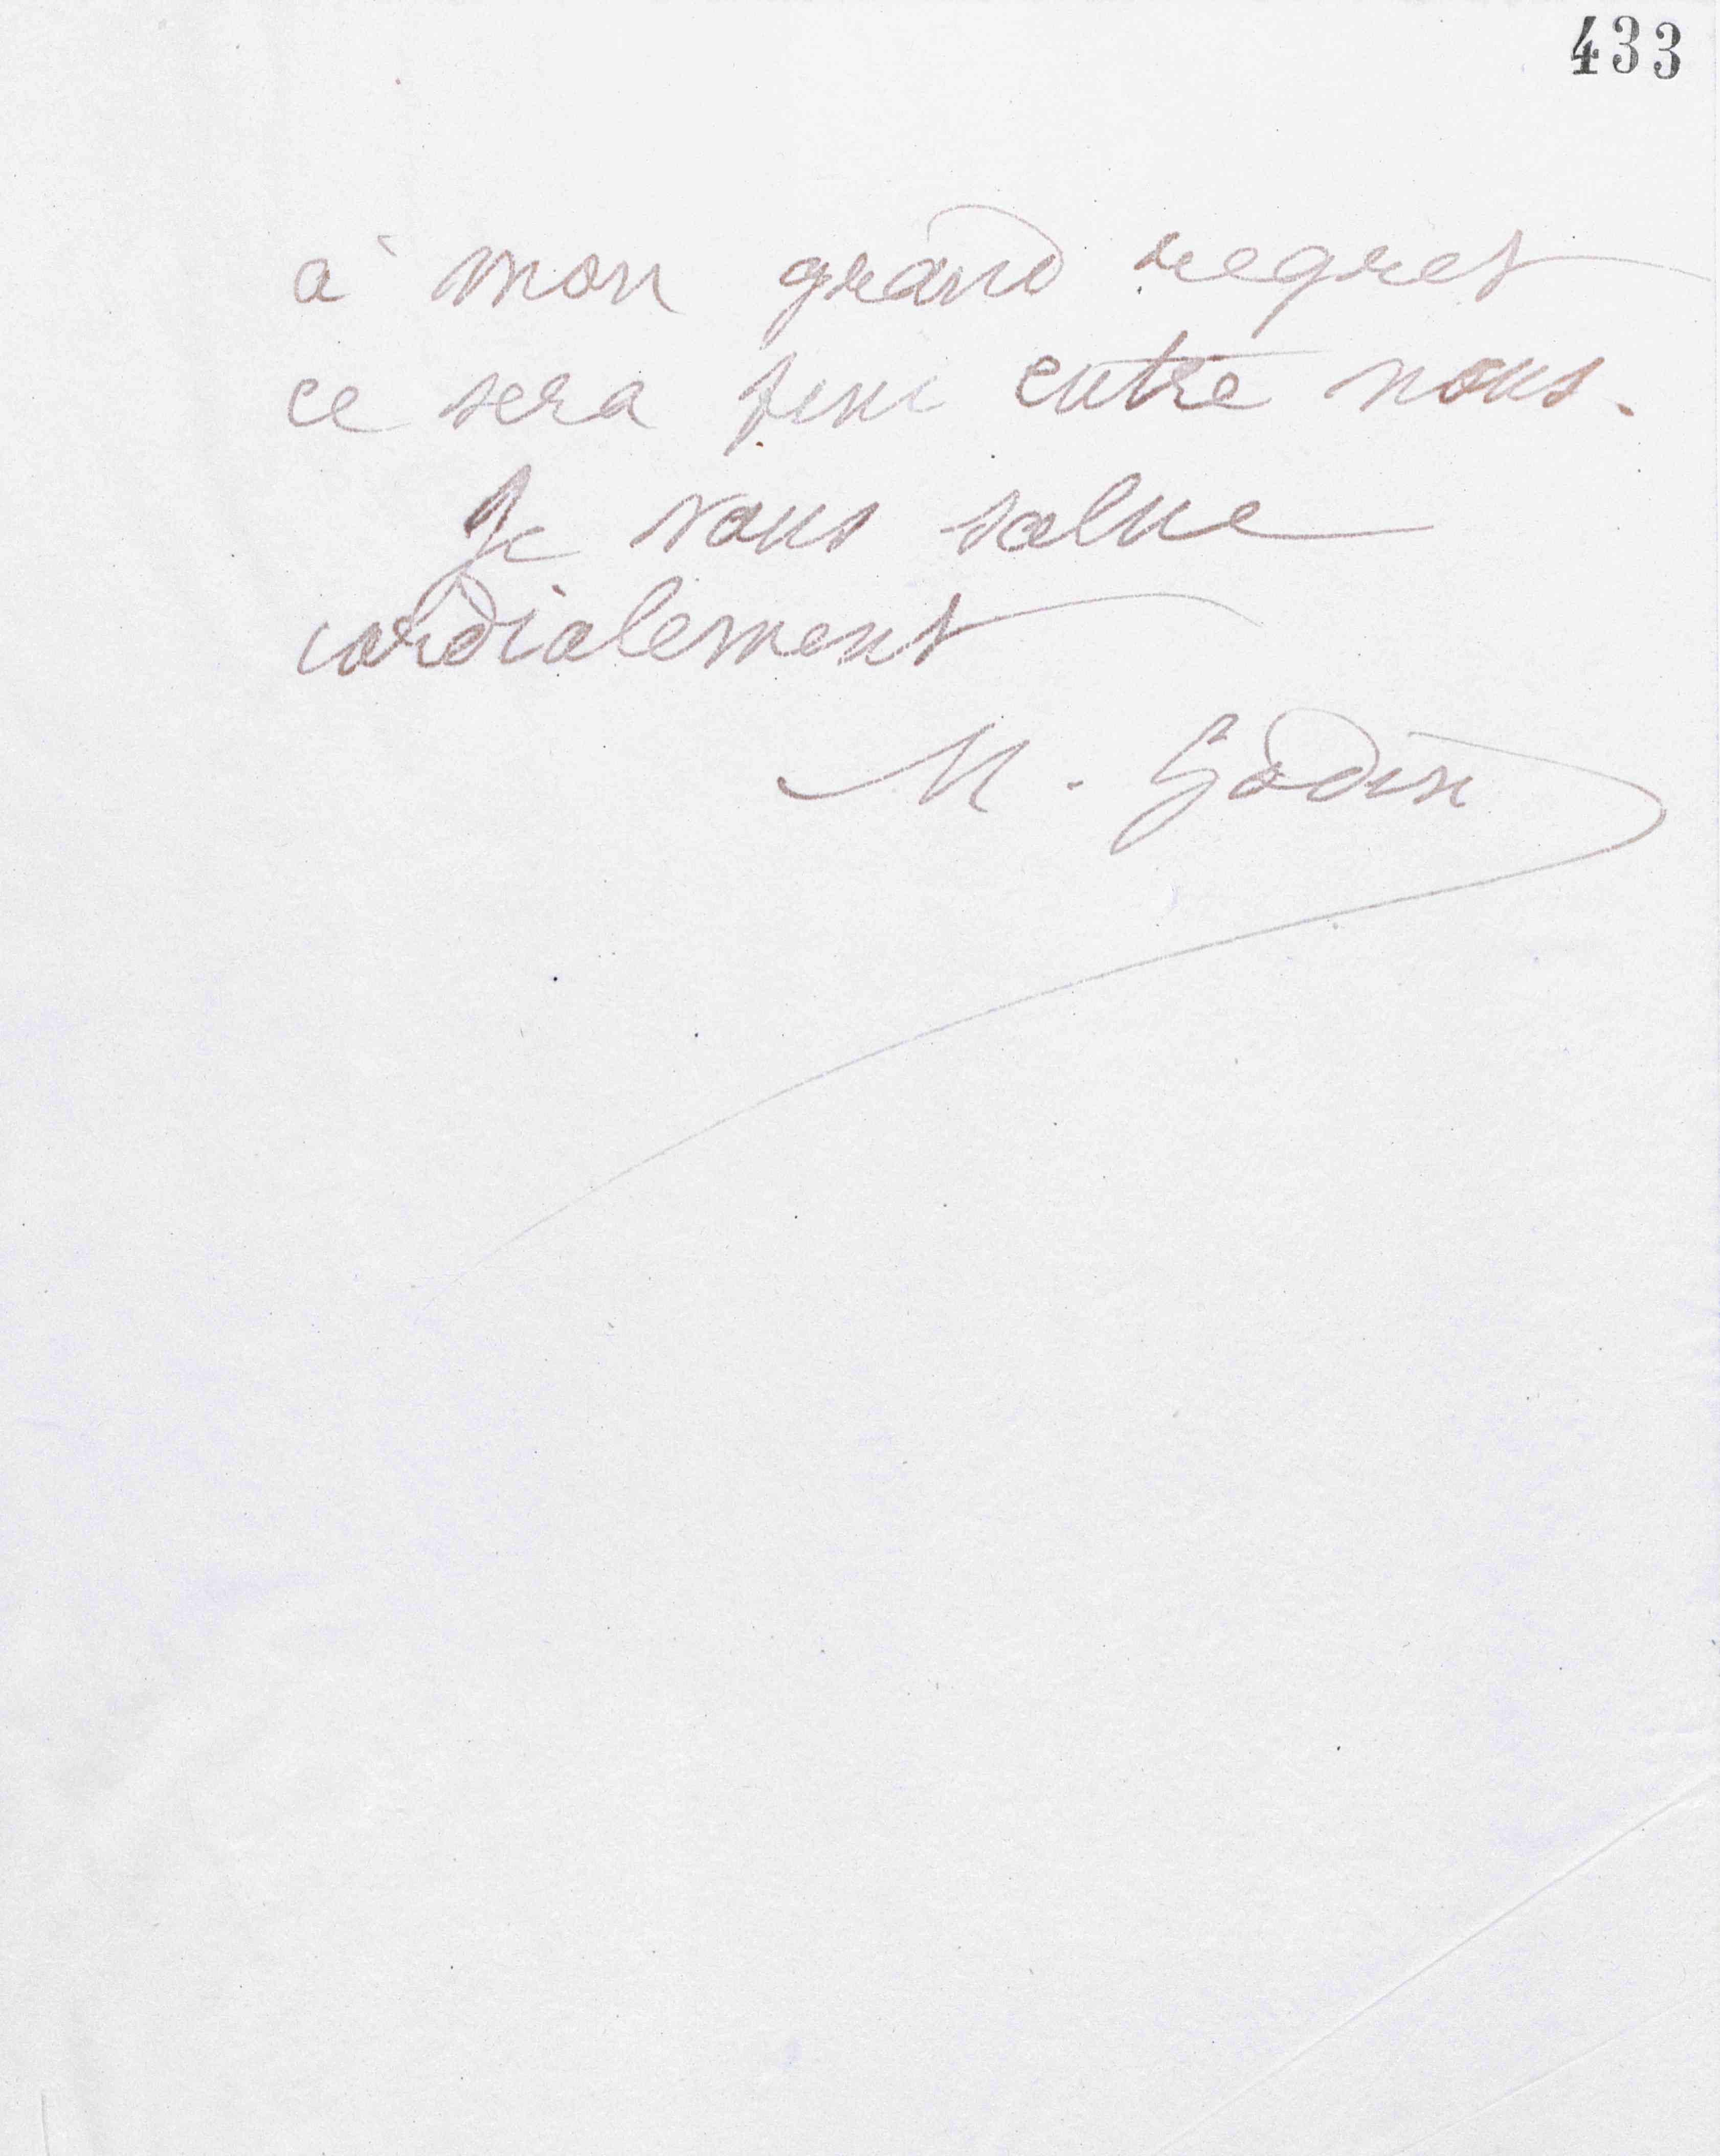 433
à mon grand regret
ce sera fini entre nous.
Je vous salue
cordialement
M. Godin